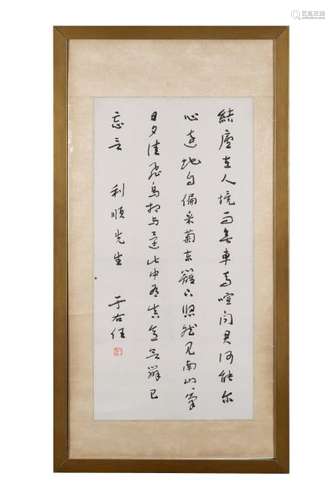 結廬在人境而無車馬喧問君何能爾
心遠地自偏采菊東籬下悠然見南山〻氣
日夕佳飛鳥相與還此中有真意欲辯已
忘言 利順先生 于右任